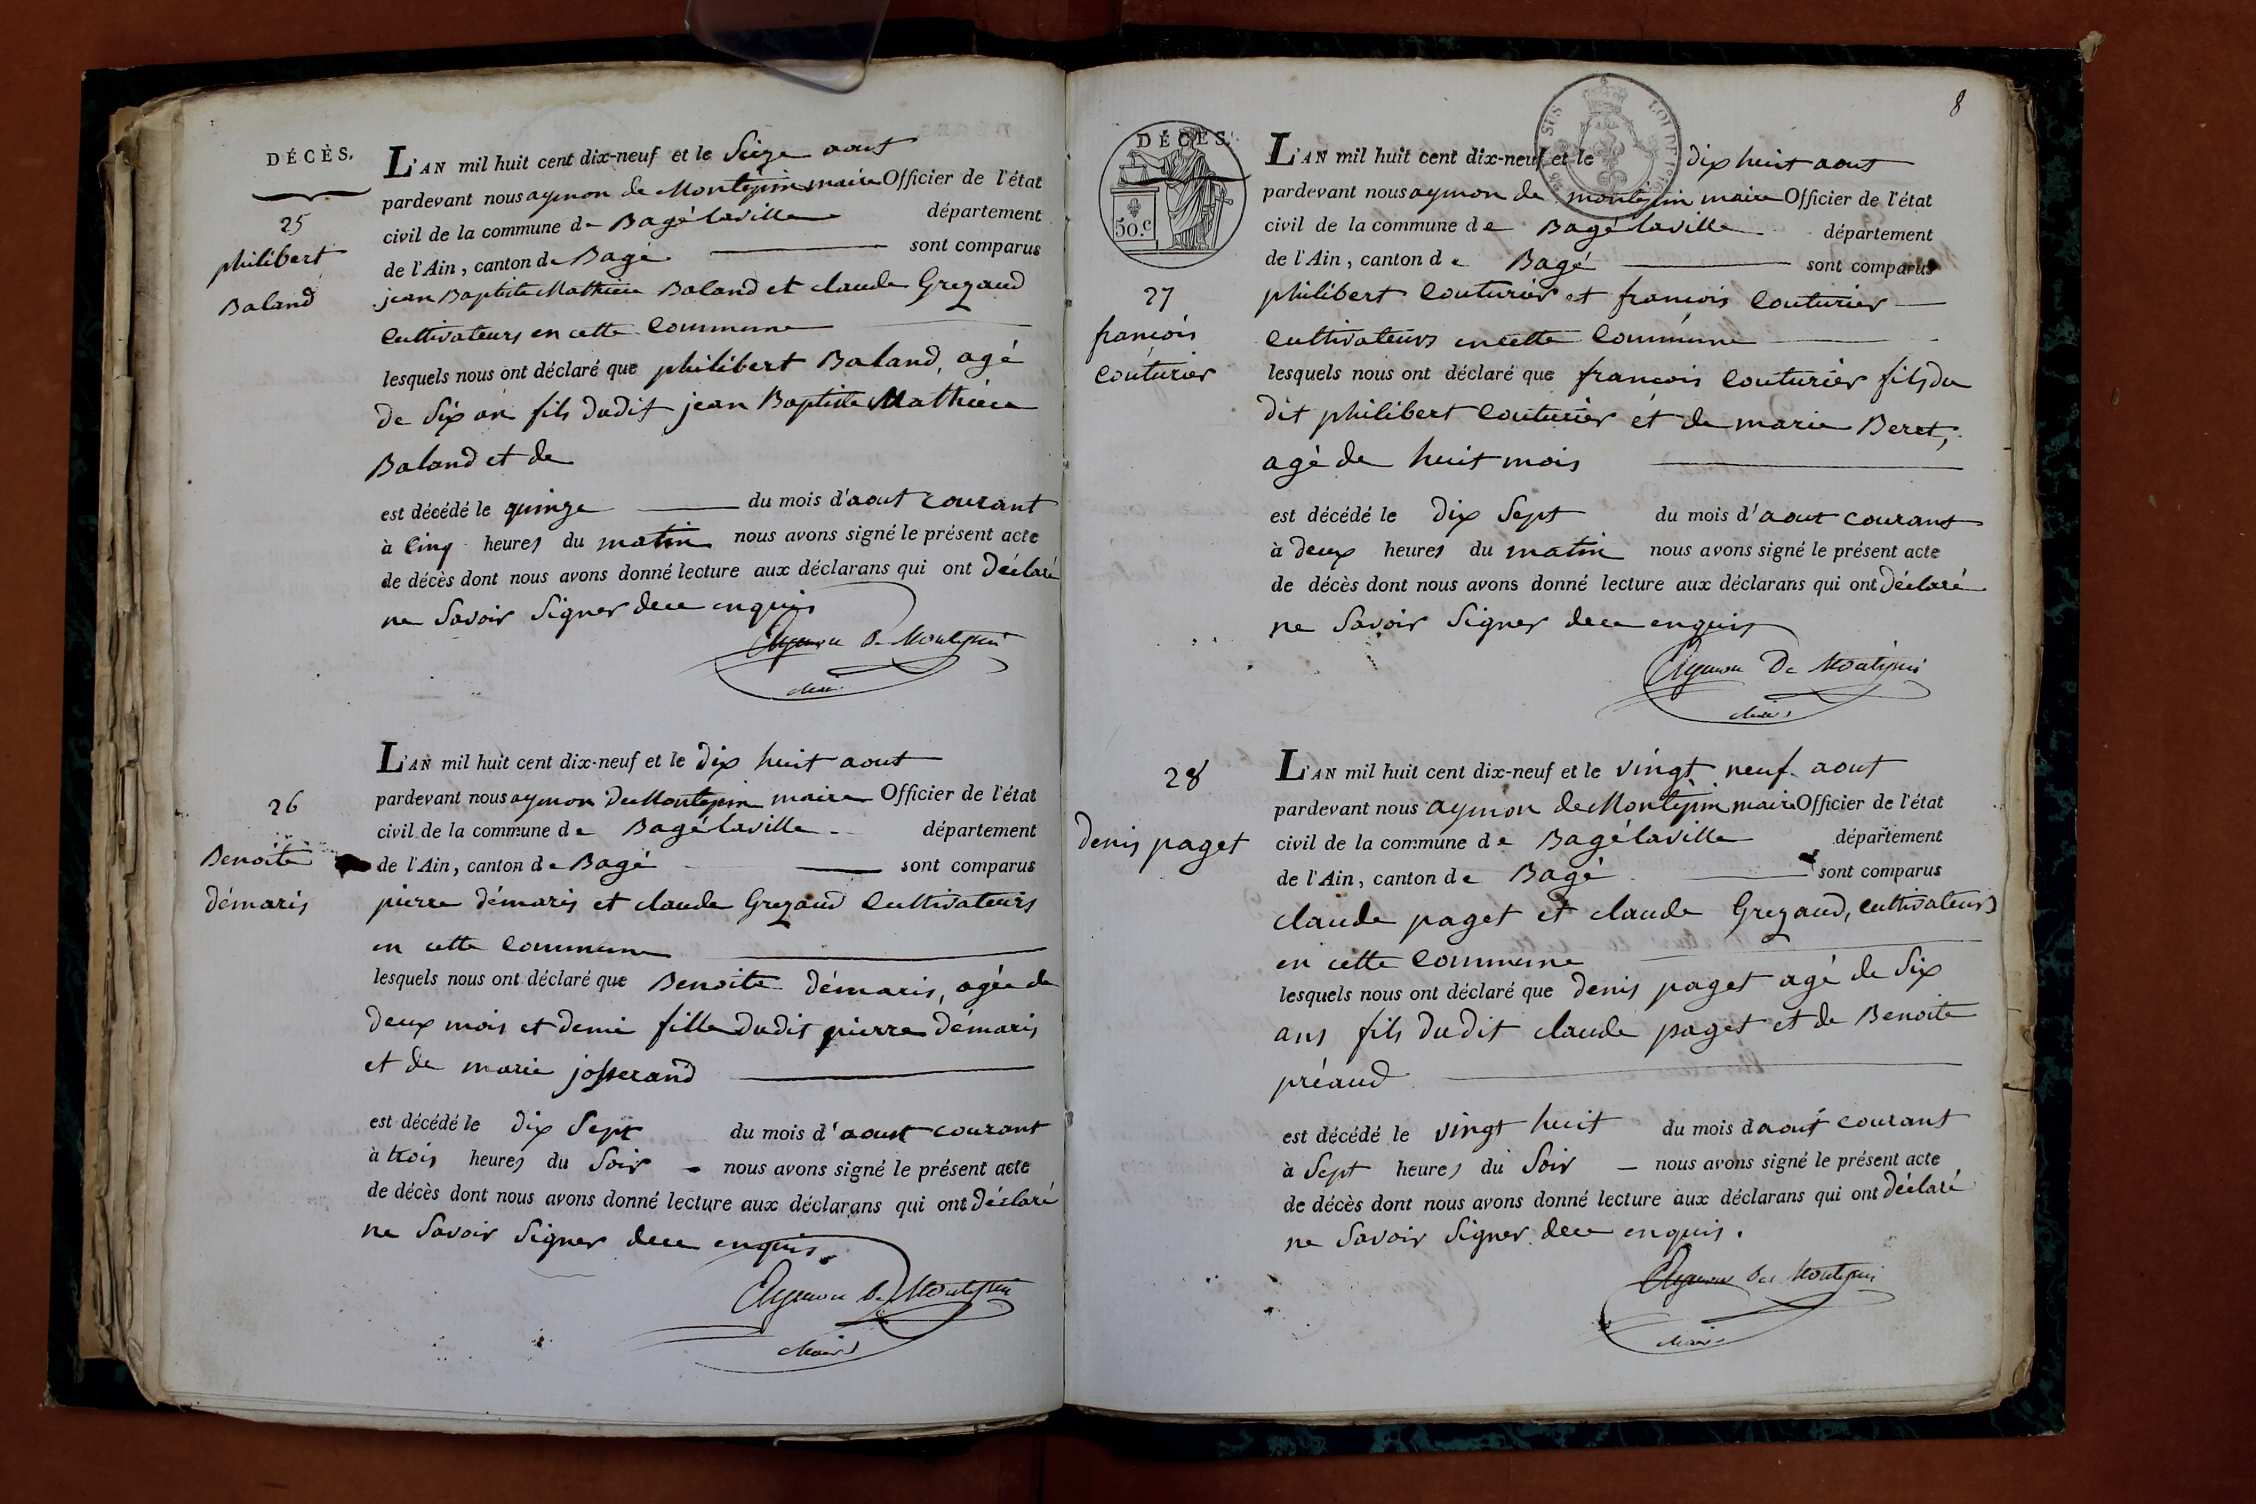 DÉCÈS.
25
philibert
Baland
L'AN mil huit cent dix-neuf et le Seize aout
pardevant nous aymon de Montepin maire Officier de l'état
civil de la commune de Bagé laville département
de l'Ain, canton de Bagé sont comparus
jean Baptiste Mathieu Baland et claude Grezaud
Cultivateurs en cette Commune
lesquels nous ont déclaré que philibert Baland, agé
de Six an fils dudit jean Baptiste Mathieu
Baland et de
est décédé le quinze du mois d'aout courant
à Cinq heures du matin nous avons signé le présent acte
de décès dont nous avons donné lecture aux déclarans qui ont déclaré
ne Savoir Signer dece enquis
Aymon De Montepin
Maire
26
Benoite
démaris
L'AN mil huit cent dix-neuf et le dix huit aout
pardevant nous aymon de Montepin maire Officier de l'état
civil de la commune de Bagé laville département
de l'Ain, canton de Bagé sont comparus
pierre démaris et claude Grezaud Cultivateurs
en cette Commune
lesquels nous ont déclaré que Benoite démaris, agée de
deux mois et demi fille dudit pierre démaris
et de marie josserand
est décédé le dix Sept du mois d'aout courant
à trois heures du Soir nous avons signé le présent acte
de décès dont nous avons donné lecture aux déclarans qui ont déclaré
ne Savoir Signer dece enquis.
Aymon De Montepin
Maire
8
DÉCÈS.
50.c
27
francois
couturier
L'AN mil huit cent dix-neuf et le dix huit aout
pardevant nous aymon de montepin maire Officier de l'état
civil de la commune de Bagé laville département
de l'Ain, canton de Bagé sont comparus
philibert Couturier et francois Couturier
Cultivateurs en cette Commune
lesquels nous ont déclaré que francois Couturier fils du
dit philibert Couturier et de marie Beret,
agé de huit mois
est décédé le dix Sept du mois d'aout courant
à deux heures du matin nous avons signé le présent acte
de décès dont nous avons donné lecture aux déclarans qui ont déclaré
ne Savoir Signer dece enquis
Aymon De Montepin
Maire
28
denis paget
L'AN mil huit cent dix-neuf et le vingt neuf aout
pardevant nous aymon de Montepin maire Officier de l'état
civil de la commune de Bagé laville département
de l'Ain, canton de Bagé sont comparus
claude paget et claude Grezaud, Cultivateurs
en cette Commune
lesquels nous ont déclaré que denis paget agé de Six
ans fils dudit claude paget et de Benoite
préaud
est décédé le vingt huit du mois d aout courant
à Sept heures du Soir nous avons signé le présent acte
de décès dont nous avons donné lecture aux déclarans qui ont déclaré
ne Savoir Signer dece enquis.
Aymon De Montepin
Maire